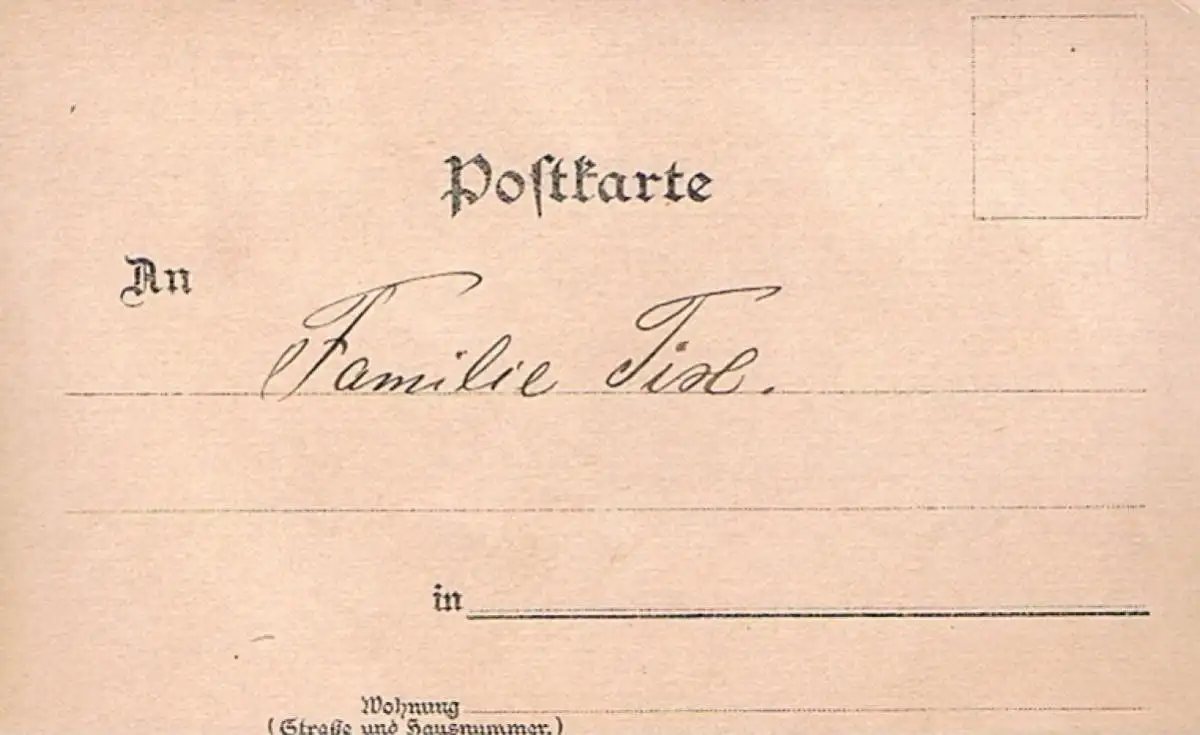 Postkarte
An
Familie Tixl.
in
Wohnung
(Straße und Hausnummer.)